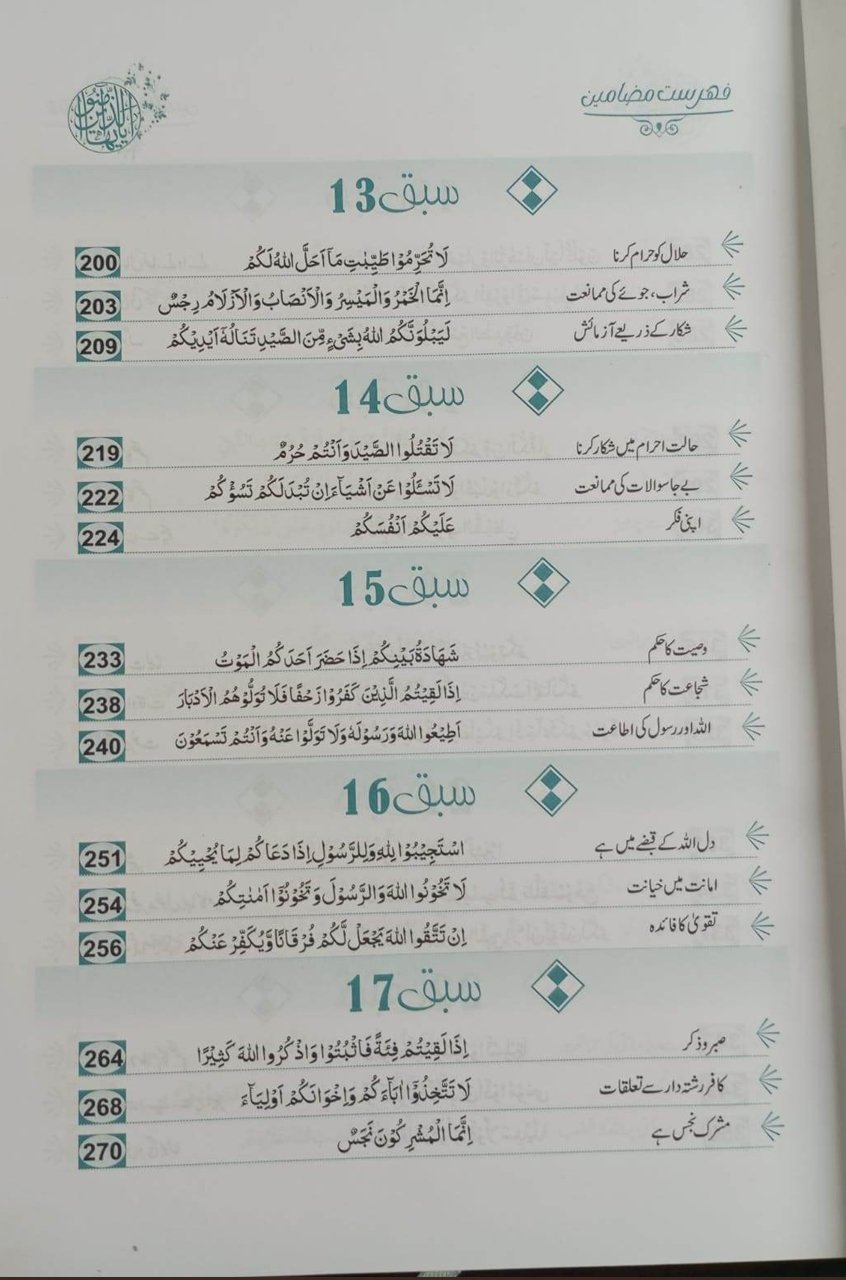 فہرست مضامین
یایہا الذین امنوا
سبق 13
حلال کو حرام کرنا لَا تُحَرِّمُوْا طَيِّبٰتِ مَآ اَحَلَّ اللّٰهُ لَكُمْ 200
شراب، جوئے کی ممانعت اِنَّمَا الْخَمْرُ وَالْمَيْسِرُ وَالْاَنْصَابُ وَالْاَزْلَامُ رِجْسٌ 203
شکار کے ذریعے آزمائش لَيَبْلُوَنَّكُمُ اللّٰهُ بِشَيْءٍ مِّنَ الصَّيْدِ تَنَالُهٗٓ اَيْدِيْكُمْ 209
سبق 14
حالت احرام میں شکار کرنا لَا تَقْتُلُوا الصَّيْدَ وَاَنْتُمْ حُرُمٌ 219
بے جا سوالات کی ممانعت لَا تَسْـَٔلُوْا عَنْ اَشْيَآءَ اِنْ تُبْدَ لَكُمْ تَسُؤْكُمْ 222
اپنی فکر عَلَيْكُمْ اَنْفُسَكُمْ 224
سبق 15
وصیت کا حکم شَهَادَةُ بَيْنِكُمْ اِذَا حَضَرَ اَحَدَكُمُ الْمَوْتُ 233
شجاعت کا حکم اِذَا لَقِيْتُمُ الَّذِيْنَ كَفَرُوْا زَحْفًا فَلَا تُوَلُّوْهُمُ الْاَدْبَارَ 238
اللہ اور رسول کی اطاعت اَطِيْعُوا اللّٰهَ وَرَسُوْلَهٗ وَلَا تَوَلَّوْا عَنْهُ وَاَنْتُمْ تَسْمَعُوْنَ 240
سبق 16
دل اللہ کے قبضے میں ہے اسْتَجِيْبُوْا لِلّٰهِ وَلِلرَّسُوْلِ اِذَا دَعَاكُمْ لِمَا يُحْيِيْكُمْ 251
امانت میں خیانت لَا تَخُوْنُوا اللّٰهَ وَالرَّسُوْلَ وَتَخُوْنُوْٓا اَمٰنٰتِكُمْ 254
تقویٰ کا فائدہ اِنْ تَتَّقُوا اللّٰهَ يَجْعَلْ لَّكُمْ فُرْقَانًا وَّيُكَفِّرْ عَنْكُمْ 256
سبق 17
صبر و ذکر اِذَا لَقِيْتُمْ فِئَةً فَاثْبُتُوْا وَاذْكُرُوا اللّٰهَ كَثِيْرًا 264
کافر رشتہ دار سے تعلقات لَا تَتَّخِذُوْٓا اٰبَآءَكُمْ وَاِخْوَانَكُمْ اَوْلِيَآءَ 268
مشرک نجس ہے اِنَّمَا الْمُشْرِكُوْنَ نَجَسٌ 270